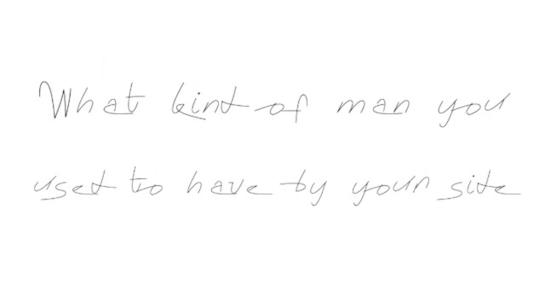 What kind of man you
used to have by your side